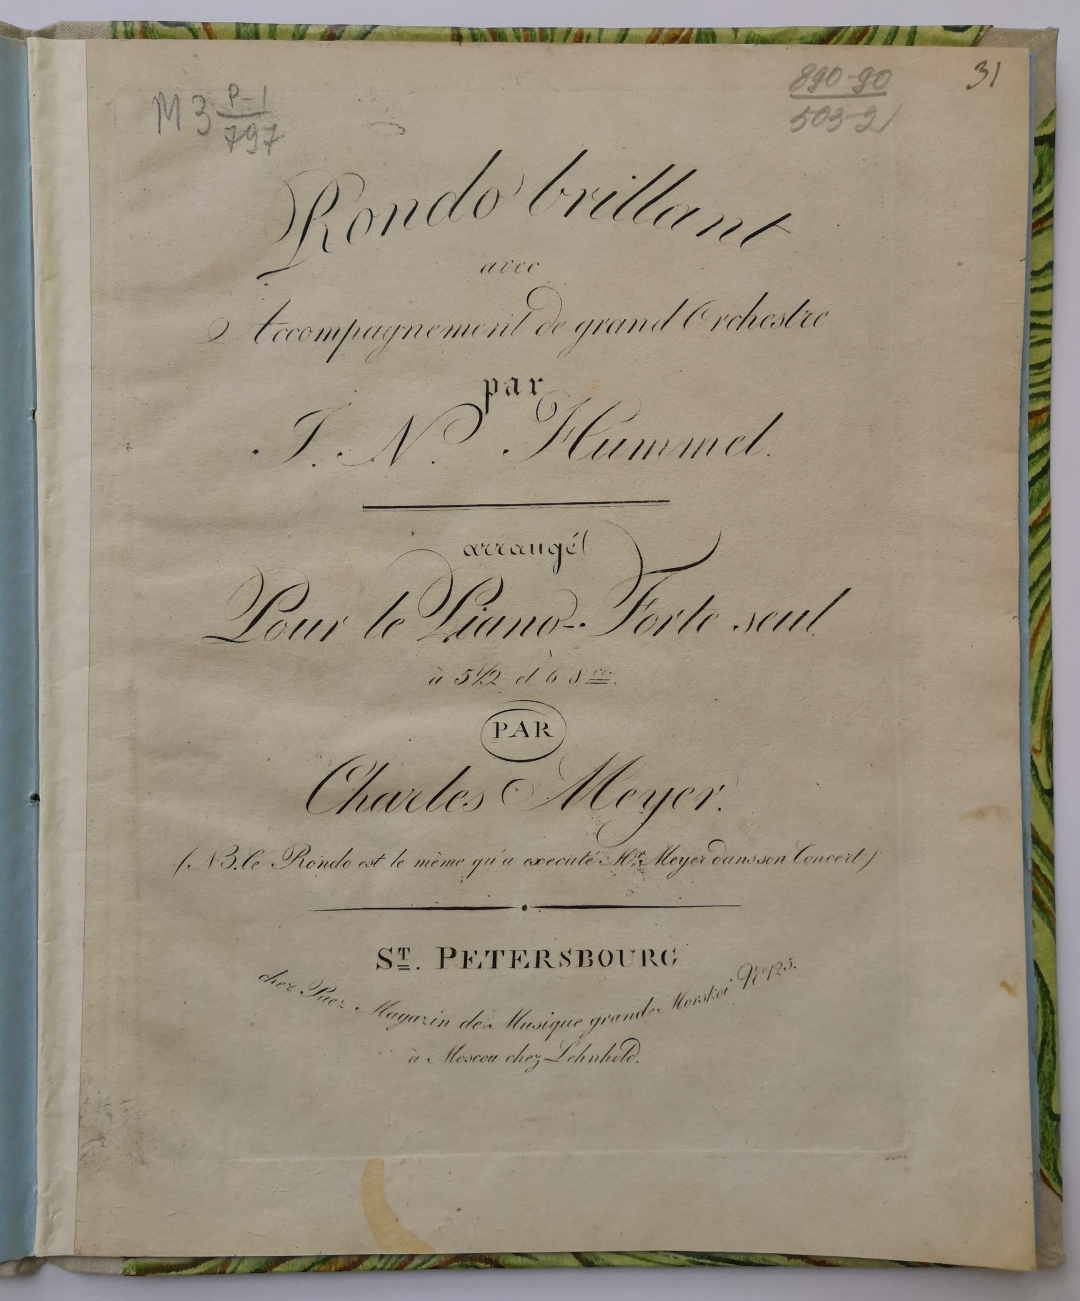 М 3 Р-1
797
890-90
503-2
31
Rondo brillant
avec
Accompagnement de grand Orchestre
par
J. N. Hummel.
arrangé
Pour le Piano-Forte seul
à 5 1/2 et 6 8ves.
PAR
Charles Meyer.
(NB. Ce Rondo est le même qu'a executé Mr. Meyer dans son Concert)
ST. PETERSBOURG
chez Paez Magazin de Musique grande Morskoi No. 125.
à Moscou chez Lehnhold.